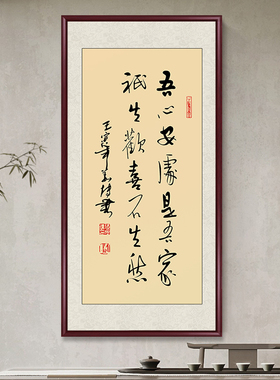 吾心安處是吾家
祇生歡喜不生愁
壬寅年